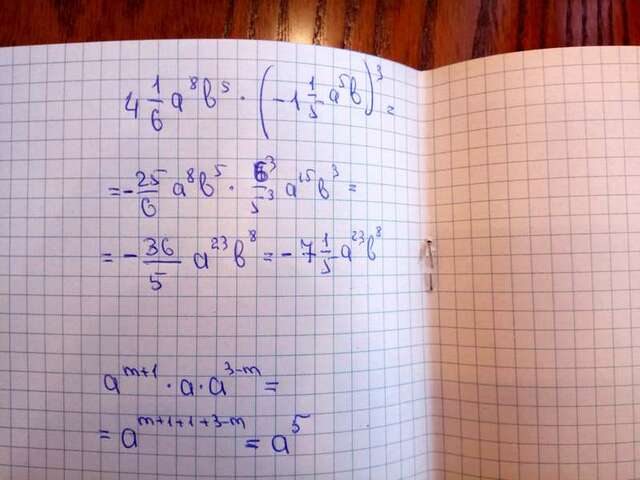 4 1/6 a^8 b^5 · (-1 1/5 a^5 b)^3 =
= - 25/6 a^8 b^5 · 6^3/5^3 a^15 b^3 =
= - 36/5 a^23 b^8 = - 7 1/5 a^23 b^8
a^(m+1) · a · a^(3-m) =
= a^(m+1+1+3-m) = a^5